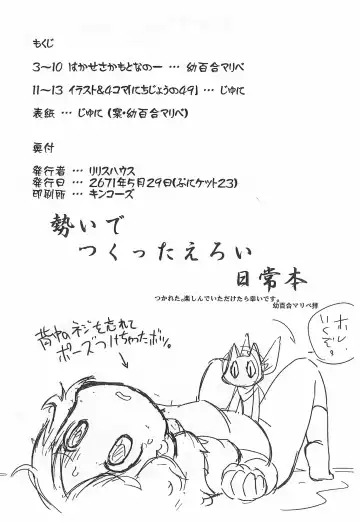 もくじ
3〜10 はかせさかもとなのー … 幼百合マリベ
11〜13 イラスト&4コマ「にちじょうの49」 … じゅに
表紙 … じゅに (案・幼百合マリベ)
奥付
発行者 … リリスハウス
発行日 … 2671年5月29日(ぷにケット23)
印刷所 … キンコーズ
勢いで
つくったえろい
日常本
つかれた。楽しんでいただけたら幸いです。
幼百合マリベ拝
背中のネジを忘れて
ポーズつけちゃったボツ。